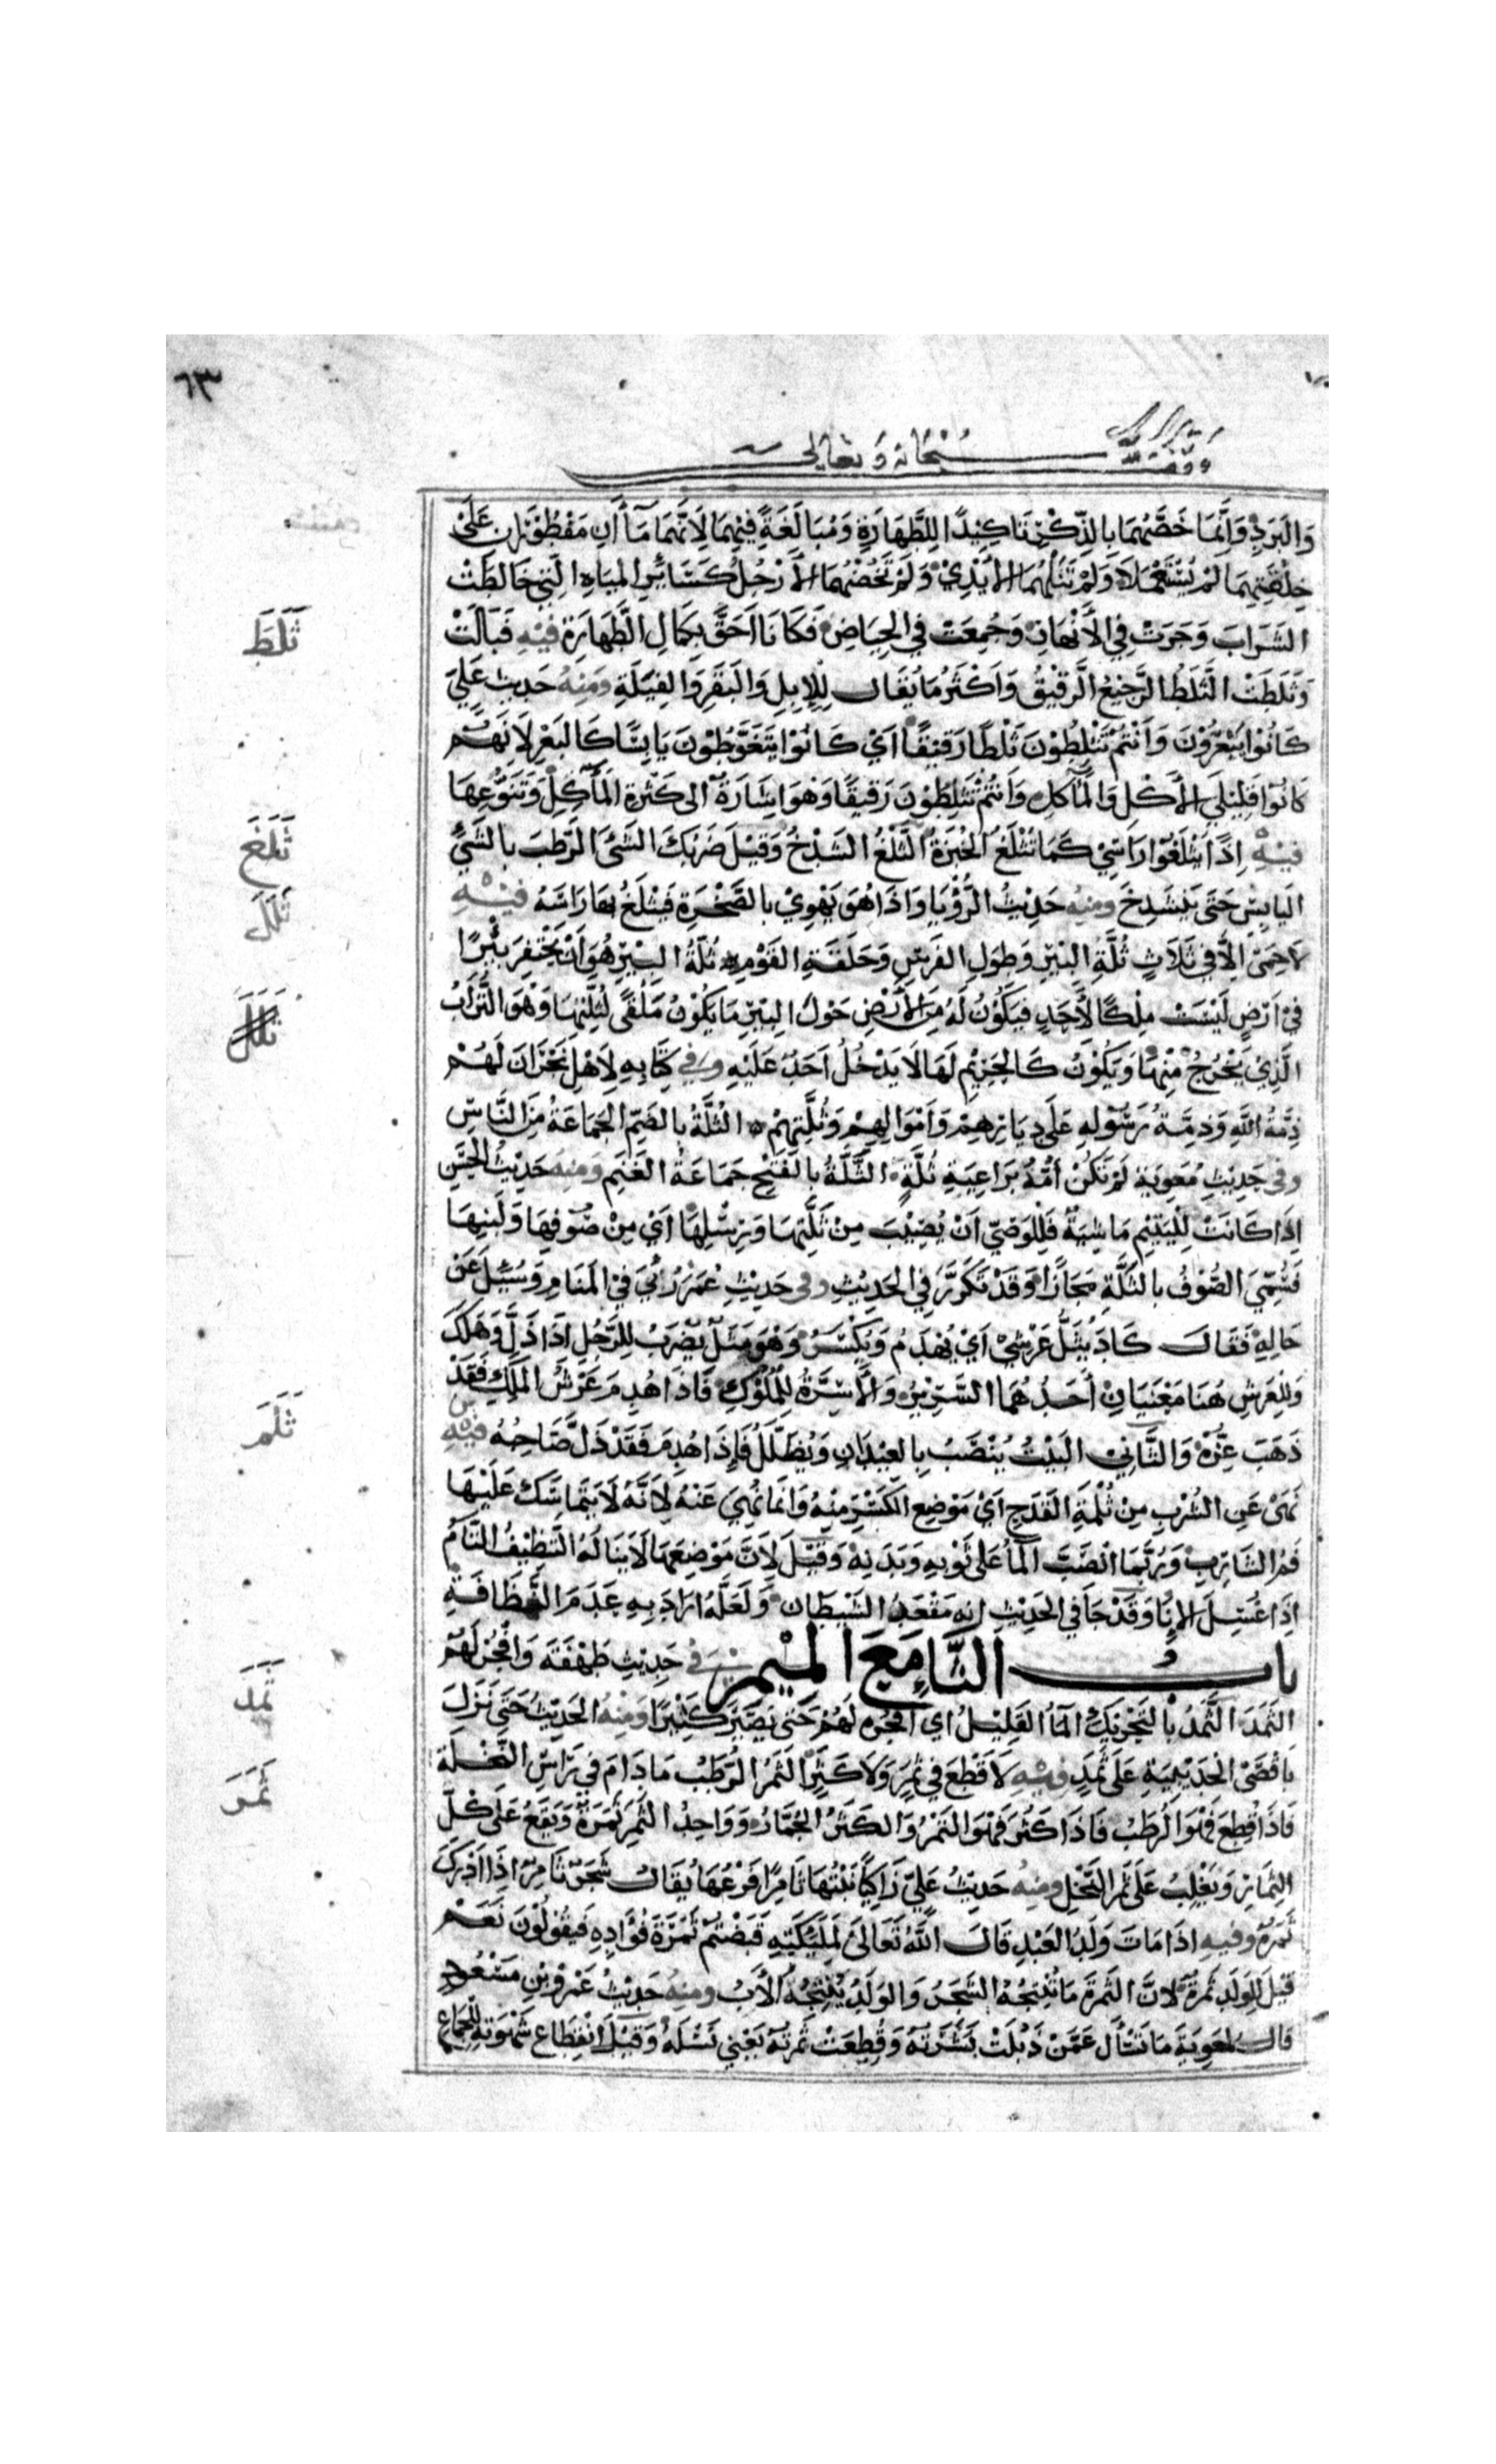 ٦٣
وقف لله سبحانه وتعالى
وَالبَرَدِ وَاِنَّمَا خَصَّهُمَا بِالذِّكْرِ تَاكِيْدًا لِلطَّهَارَةِ وَمُبَالَغَةً فِيْهِمَا لِاَنَّهُمَا مَاۤاَنِ مَفْطُوْرَانِ عَلَى
خِلْقَتِهِمَا لَمْ يُسْتَعْمَلَا وَلَمْ تَنَلْهُمَا الْاَيْدِيْ وَلَمْ تَخُضْهُمَا الْاَرْجُلُ كَسَائِرِ المِيَاهِ الَّتِي خَالَطَتْ
التُّرَابَ وَجَرَتْ فِي الأَنْهَارِ وَجُمِعَتْ فِي الحِيَاضِ فَكَانَا اَحَقَّ بِكَمَالِ الطَّهَارَةِ فِيْهِ فَبَالَتْ
ثَلَطَ
وَثَلَطَتْ الثَّلَطُ الرَّجِيْعُ الرَّقِيْقُ وَاَكْثَرُ مَا يُقَالُ لِلْاِبِلِ وَالبَقَرِ وَالفِيَلَةِ وَمِنْهُ حَدِيثُ عَلِيٍّ
كَانُوْا يَبْعَرُوْنَ وَاَنْتُمْ تَثْلِطُوْنَ ثَلْطًا رَقِيْقًا اَيْ كَانُوْا يَتَغَوَّطُوْنَ يَابِسًا كَالبَعْرِ لِاَنَّهُمْ
كَانُوْا قَلِيْلِي الاَكْلِ وَالمَآكِلِ وَاَنْتُمْ تَثْلِطُوْنَ رَقِيْقًا وَهُوَ اِشَارَةٌ اِلَى كَثْرَةِ المَآكِلِ وَتَنَوُّعِهَا
ثَلَغَ
فِيْهِ اِذًا يَثْلَغُوْا رَاسِيْ كَمَا تُثْلَغُ الخُبْزَةُ الثَّلْغُ الشَّدْخُ وَقِيْلَ ضَرْبُكَ الشَّئَ الرَّطْبَ بِالشَّيْءِ
ثَلَلَ
اليَابِسِ حَتَى يَنْشَدِخَ وَمِنْهُ حَدِيْثُ الرُّؤْيَا وَاِذَا هُوَ يَهْوِيْ بِالصَّخْرَةِ فَيَثْلَغُ بِهَا رَاسَهُ فِيْهِ
لَا حِمَى اِلَّا فِي ثَلَاثٍ ثُلَّةِ البِئْرِ وَطِوَلِ الفَرَسِ وَحَلْقَةِ القَوْمِ ثُلَّةُ البِيْرِ هُوَ اَنْ يَحْتَفِرَ بِئْرًا
ثَلَلَ
فِيْ اَرْضٍ لَيْسَتْ مِلْكًا لِاَحَدٍ فَيَكُوْنُ لَهُ مِنَ الْاَرْضِ حَوْلَ البِئْرِ مَا يَكُوْنُ مَلْقًى لِثُلَّتِهَا وَهُوَ التُّرَابُ
الَّذِيْ يَخْرُجُ مِنْهَا وَيَكُوْنُ كَالحَرِيْمِ لَهَا لَا يَدْخُلُ اَحَدٌ عَلَيْهِ وَفِي كِتَابِهِ لِاَهْلِ نَجْرَانَ لَهُمْ
ذِمَّةُ اللّٰهِ وَذِمَّةُ رَسُوْلِهِ عَلَى دِيَارِهِمْ وَاَمْوَالِهِمْ وَثُلَّتِهِمْ الثُلَّةُ بِالضَمِّ الجَمَاعَةُ مِنَ النَّاسِ
وَفِي حَدِيْثِ مُعٰوِيَةَ لَمْ تَكُنْ اُمُّهُ بِرَاعِيَةِ ثُلَّةٍ الثَّلَّةُ بِالفَتْحِ جَمَاعَةُ الغَنَمِ وَمِنْهُ حَدِيْثُ الحَسَنِ
اِذَا كَانَتْ لِلْيَتِيْمِ مَاشِيَةٌ فَلِلْوَصِيِّ اَنْ يُصِيْبَ مِنْ ثَلَّتِهَا وَرِسْلِهَا اَيْ مِنْ صُوْفِهَا وَلَبَنِهَا
فَسُمِّيَ الصُّوْفُ بِالثَلَّةِ مَجَازًا وَقَدْ تَكَرَّرَ فِي الحَدِيْثِ وَفِي حَدِيْثِ عُمَرَ رُئِيَ فِي المَنَامِ وَسُئِلَ عَنْ
حَالِهِ فَقَالَ كَادَ يُثَلُّ عَرْشِيْ اَيْ يُهْدَمُ وَيُكْسَرُ وَهُوَ مَثَلٌ يُضْرَبُ لِلرَّجُلِ اِذَا ذَلَّ وَهَلَكَ
وَلِلْعَرْشِ هُنَا مَعْنَيَانِ اَحَدُهُمَا السَّرِيْرُ وَالْاَسِرَّةُ لِلْمُلُوْكِ فَاِذَا هُدِمَ عَرْشُ المَلِكِ فَقَدْ
ثَلَمَ
ذَهَبَ عِزُّهُ وَالثَّانِي البَيْتُ يُنْصَبُ بِالعِيْدَانِ وَيُظَلَّلُ فَاِذَا هُدِمَ فَقَدْ ذَلَّ صَاحِبُهُ فِيْهِ
نَهَى عَنِ الشُّرْبِ مِنْ ثُلْمَةِ القَدَحِ اَيْ مَوْضِعِ الكَسْرِ مِنْهُ وَاِنَّمَا نُهِيَ عَنْهُ لِاَنَّهُ لَا يَتَمَاسَكُ عَلَيْهَا
فَمُ الشَارِبِ وَرُبَّمَا انْصَبَّ المَآءُ عَلَى ثَوْبِهِ وَبَدَنِهِ وَقِيْلَ لِاَنَّ مَوْضِعَهَا لَا يَنَالُهُ التَنْظِيْفُ التَّامُّ
اِذَا غُسِلَ الاِنَا وَقَدْ جَا فِي الحَدِيْثِ اِنَّه مَقْعَدُ الشَيْطَانِ وَلَعَلَّهُ اَرَادَ بِهِ عَدَمَ النَّظَافَةِ
ثَمَدَ
بابُ الثَّاءِ مَعَ المِيْمِ فِي حَدِيْثِ طَهْفَةَ وَافْجُرْ لَهُمُ
الثَمَدَ الثَّمَدُ بِالتَحْرِيْكِ المَآءُ القَلِيْلُ اَي افْجُرْهُ لَهُمْ حَتَى يَصِيْرَ كَثِيْرًا وَمِنْهُ الحَدِيْثُ حَتَى نَزَلَ
ثَمَرَ
بِاَقْصَى الحُدَيْبِيَةِ عَلَى ثَمَدٍ فِيْهِ لَا قَطْعَ فِي ثَمَرٍ وَلَا كَثَرٍ الثَمَرُ الرُّطَبُ مَا دَامَ فِي رَاسِ النَّخْلَةِ
فَاِذَا قُطِعَ فَهُوَ الرُّطَبُ فَاِذَا كُنِزَ فَهُوَ التَمْرُ وَالكَثَرُ الجُمَّارُ وَوَاحِدُ الثَمَرِ ثَمَرَةٌ وَيَقَعُ عَلَى كُلِّ
الثِمَارِ وَيَغْلِبُ عَلَى ثَمَرِ النَّخْلِ وَمِنْهُ حَدِيْثُ عَلِيٍّ زَاكِيًا نَبْتُهَا ثَامِرًا فَرْعُهَا يُقَالُ شَجَرٌ ثَامِرٌ اِذَا اَدْرَكَ
ثَمَرُهُ وَفِيهِ اِذَا مَاتَ وَلَدُ العَبْدِ قَالَ اللّٰهُ تَعَالَى لِمَلٰئِكَتِهِ قَبَضْتُمْ ثَمَرَةَ فُؤَادِهِ فَيَقُوْلُوْنَ نَعَمْ
قِيْلَ لِلْوَلَدِ ثَمَرَةٌ لِاَنَّ الثَمَرَةَ مَا تُنْتِجُهُ الشَجَرُ وَالوَلَدُ يُنْتِجُهُ الْاَبُ وَمِنْهُ حَدِيْثُ عَمْرِو بْنِ مَسْعُوْدٍ
قَالَ لِمُعٰوِيَةَ مَا تَسْأَل عَمَّنْ ذَبُلَتْ بَشَرَتُهُ وَقُطِعَتْ ثَمَرَتُهُ يَعْنِي نَسْلَهُ وَقِيْلَ انْقِطَاع شَهْوَتِهِ لِلْجِمَاعِ